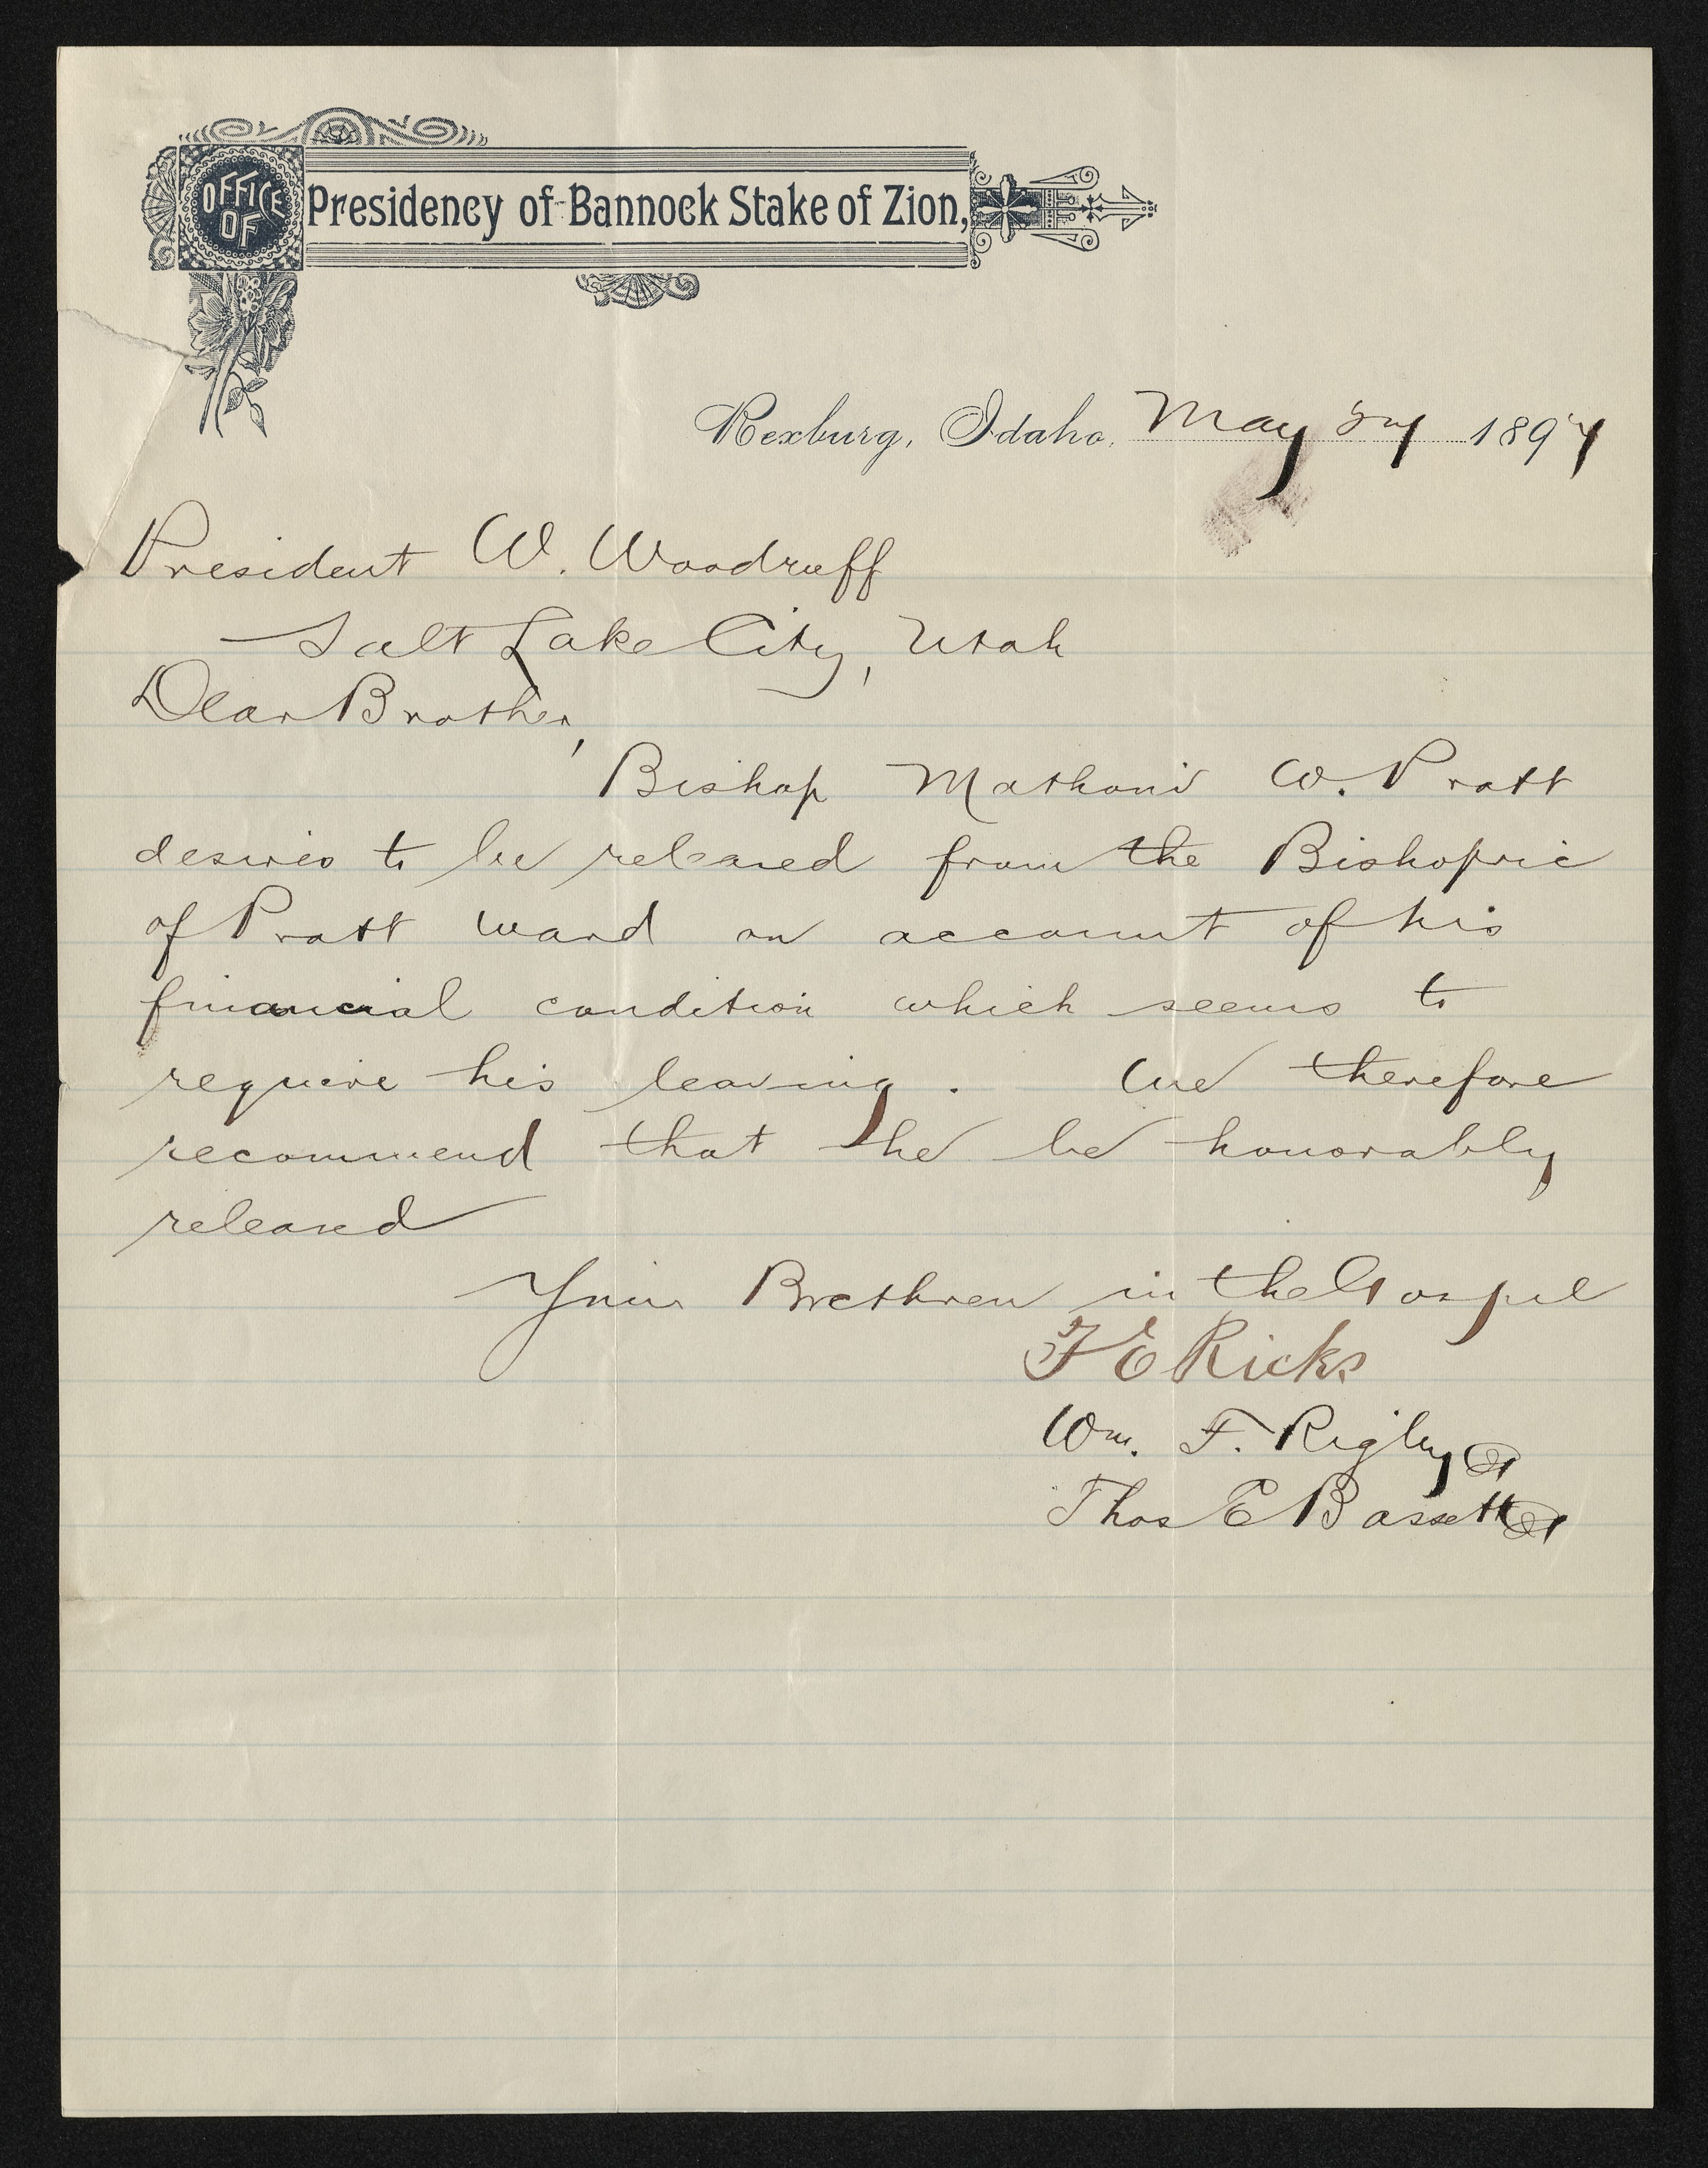 OFFICE OF Presidency of Bannock Stake of Zion,
Rexburg, Idaho, May 27 1897
President W. Woodruff
Salt Lake City, Utah
Dear Brother,
Bishop Mathoni W. Pratt
desires to be released from the Bishopric
of Pratt ward on account of his
financial condition which seems to
require his leaving. We therefore
recommend that he be honorably
released
Your Brethren in the Gospel
T E Ricks
Wm. F. Rigby
Thos E Bassett